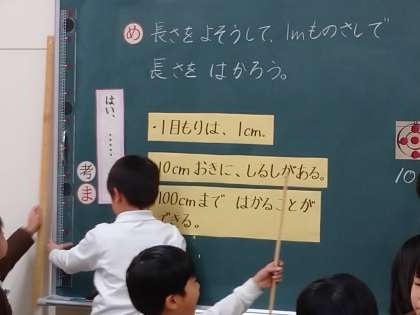 め 長さをよそうして、1mものさしで
長さを はかろう。
はい、……
・1目もりは、1cm.
10cmおきに、しるしがある。
100cmまで はかることが
できる。
考
ま
10